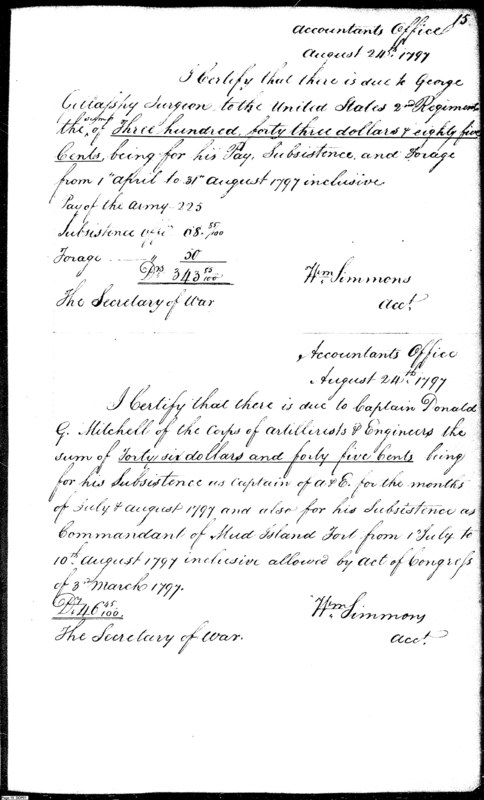 15
Accountants Office
August 24th 1797
I Certify that there is due to George
Gillaspy Surgeon, to the United States 2nd Regiment
the sum of Three hundred, forty three dollars & eighty five
Cents, being for his Pay, Subsistence, and Forage
from 1st April to 31st August 1797 inclusive
Pay of the Army 225
Subsistence 68. 85/100
Forage " 50
Drs 343 85/100
Wm Simmons
The Secretary of War
Acct.
Accountants Office
August 24th 1797
I Certify that there is due to Captain Donald
G. Mitchell of the Corps of Artillerists & Engineers the
sum of Forty six dollars and forty five Cents being
for his Subsistence as Captain of A & E. for the months
of July & August 1797 and also for his Subsistence as
Commandant of Mud Island Fort from 1st July to
10th August 1797 inclusive allowed by Act of Congress
of 3rd March 1797.
Drs 46 45/100.
Wm Simmons
The Secretary of War.
Acct.